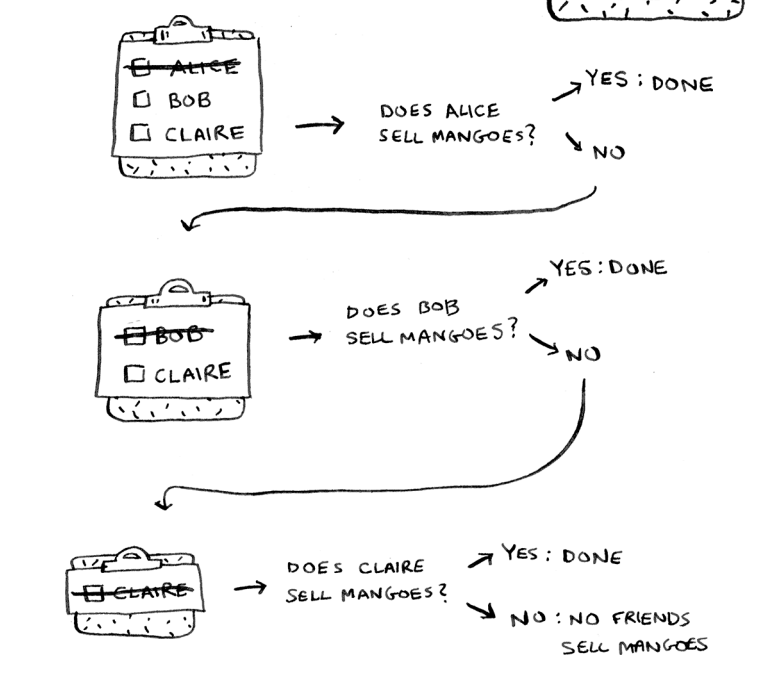 ALICE
BOB
CLAIRE
DOES ALICE
SELL MANGOES?
YES : DONE
NO
BOB
CLAIRE
DOES BOB
SELL MANGOES?
YES : DONE
NO
CLAIRE
DOES CLAIRE
SELL MANGOES?
YES : DONE
NO : NO FRIENDS
SELL MANGOES